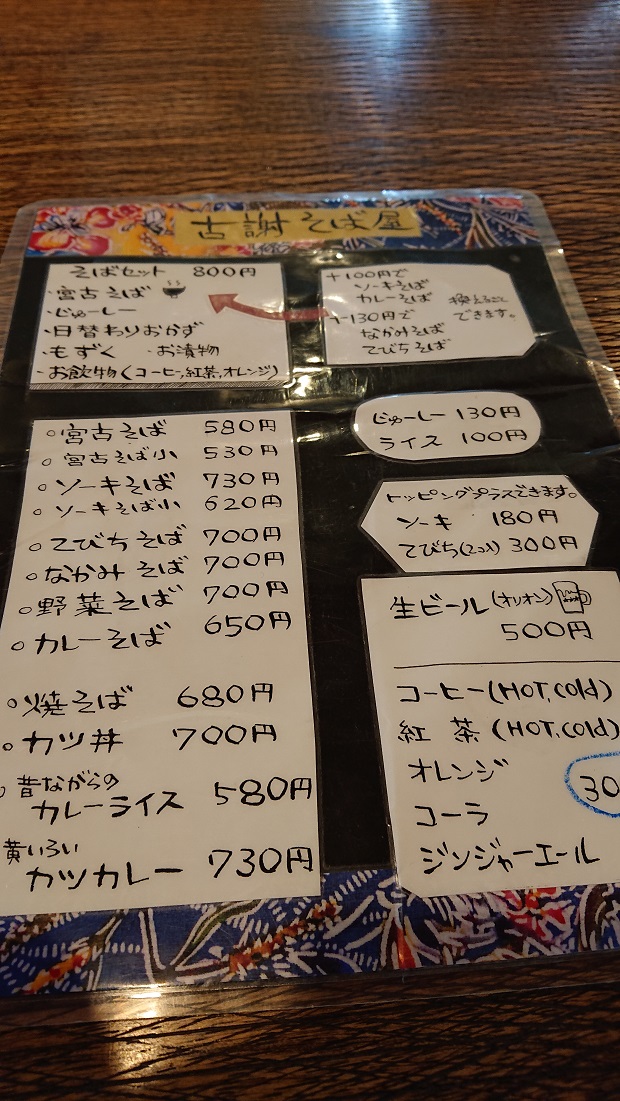 古謝そば屋
そばセット 800円
・宮古そば
・じゅーしー
・日替わりおかず
・もずく ・お漬物
・お飲物(コーヒー,紅茶,オレンジ)
+100円で
ソーキそば
カレーそば
+130円で
なかみそば
てびちそば
換えること
できます。
じゅーしー 130円
ライス 100円
○宮古そば 580円
○宮古そば小 530円
○ソーキそば 730円
○ソーキそば小 620円
○てびちそば 700円
○なかみそば 700円
○野菜そば 700円
○カレーそば 650円
○焼そば 680円
○カツ丼 700円
○昔ながらの
カレーライス 580円
黄いろい
カツカレー 730円
トッピングプラスできます。
ソーキ 180円
てびち(2コ入) 300円
生ビール(オリオン)
500円
コーヒー(HOT,Cold)
紅茶(HOT,Cold)
オレンジ
コーラ
ジンジャーエール
30